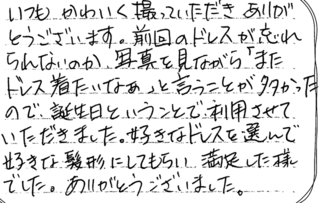 いつも かわいく撮っていただき ありが
とうございます。前回のドレスが忘れ
られないのか、写真を見ながら「また
ドレス着たいなぁ」と言うことが多かった
ので、誕生日ということで、利用させて
いただきました。好きなドレスを選んで
好きな髪形にしてもらい 満足した様
でした。ありがとうございました。